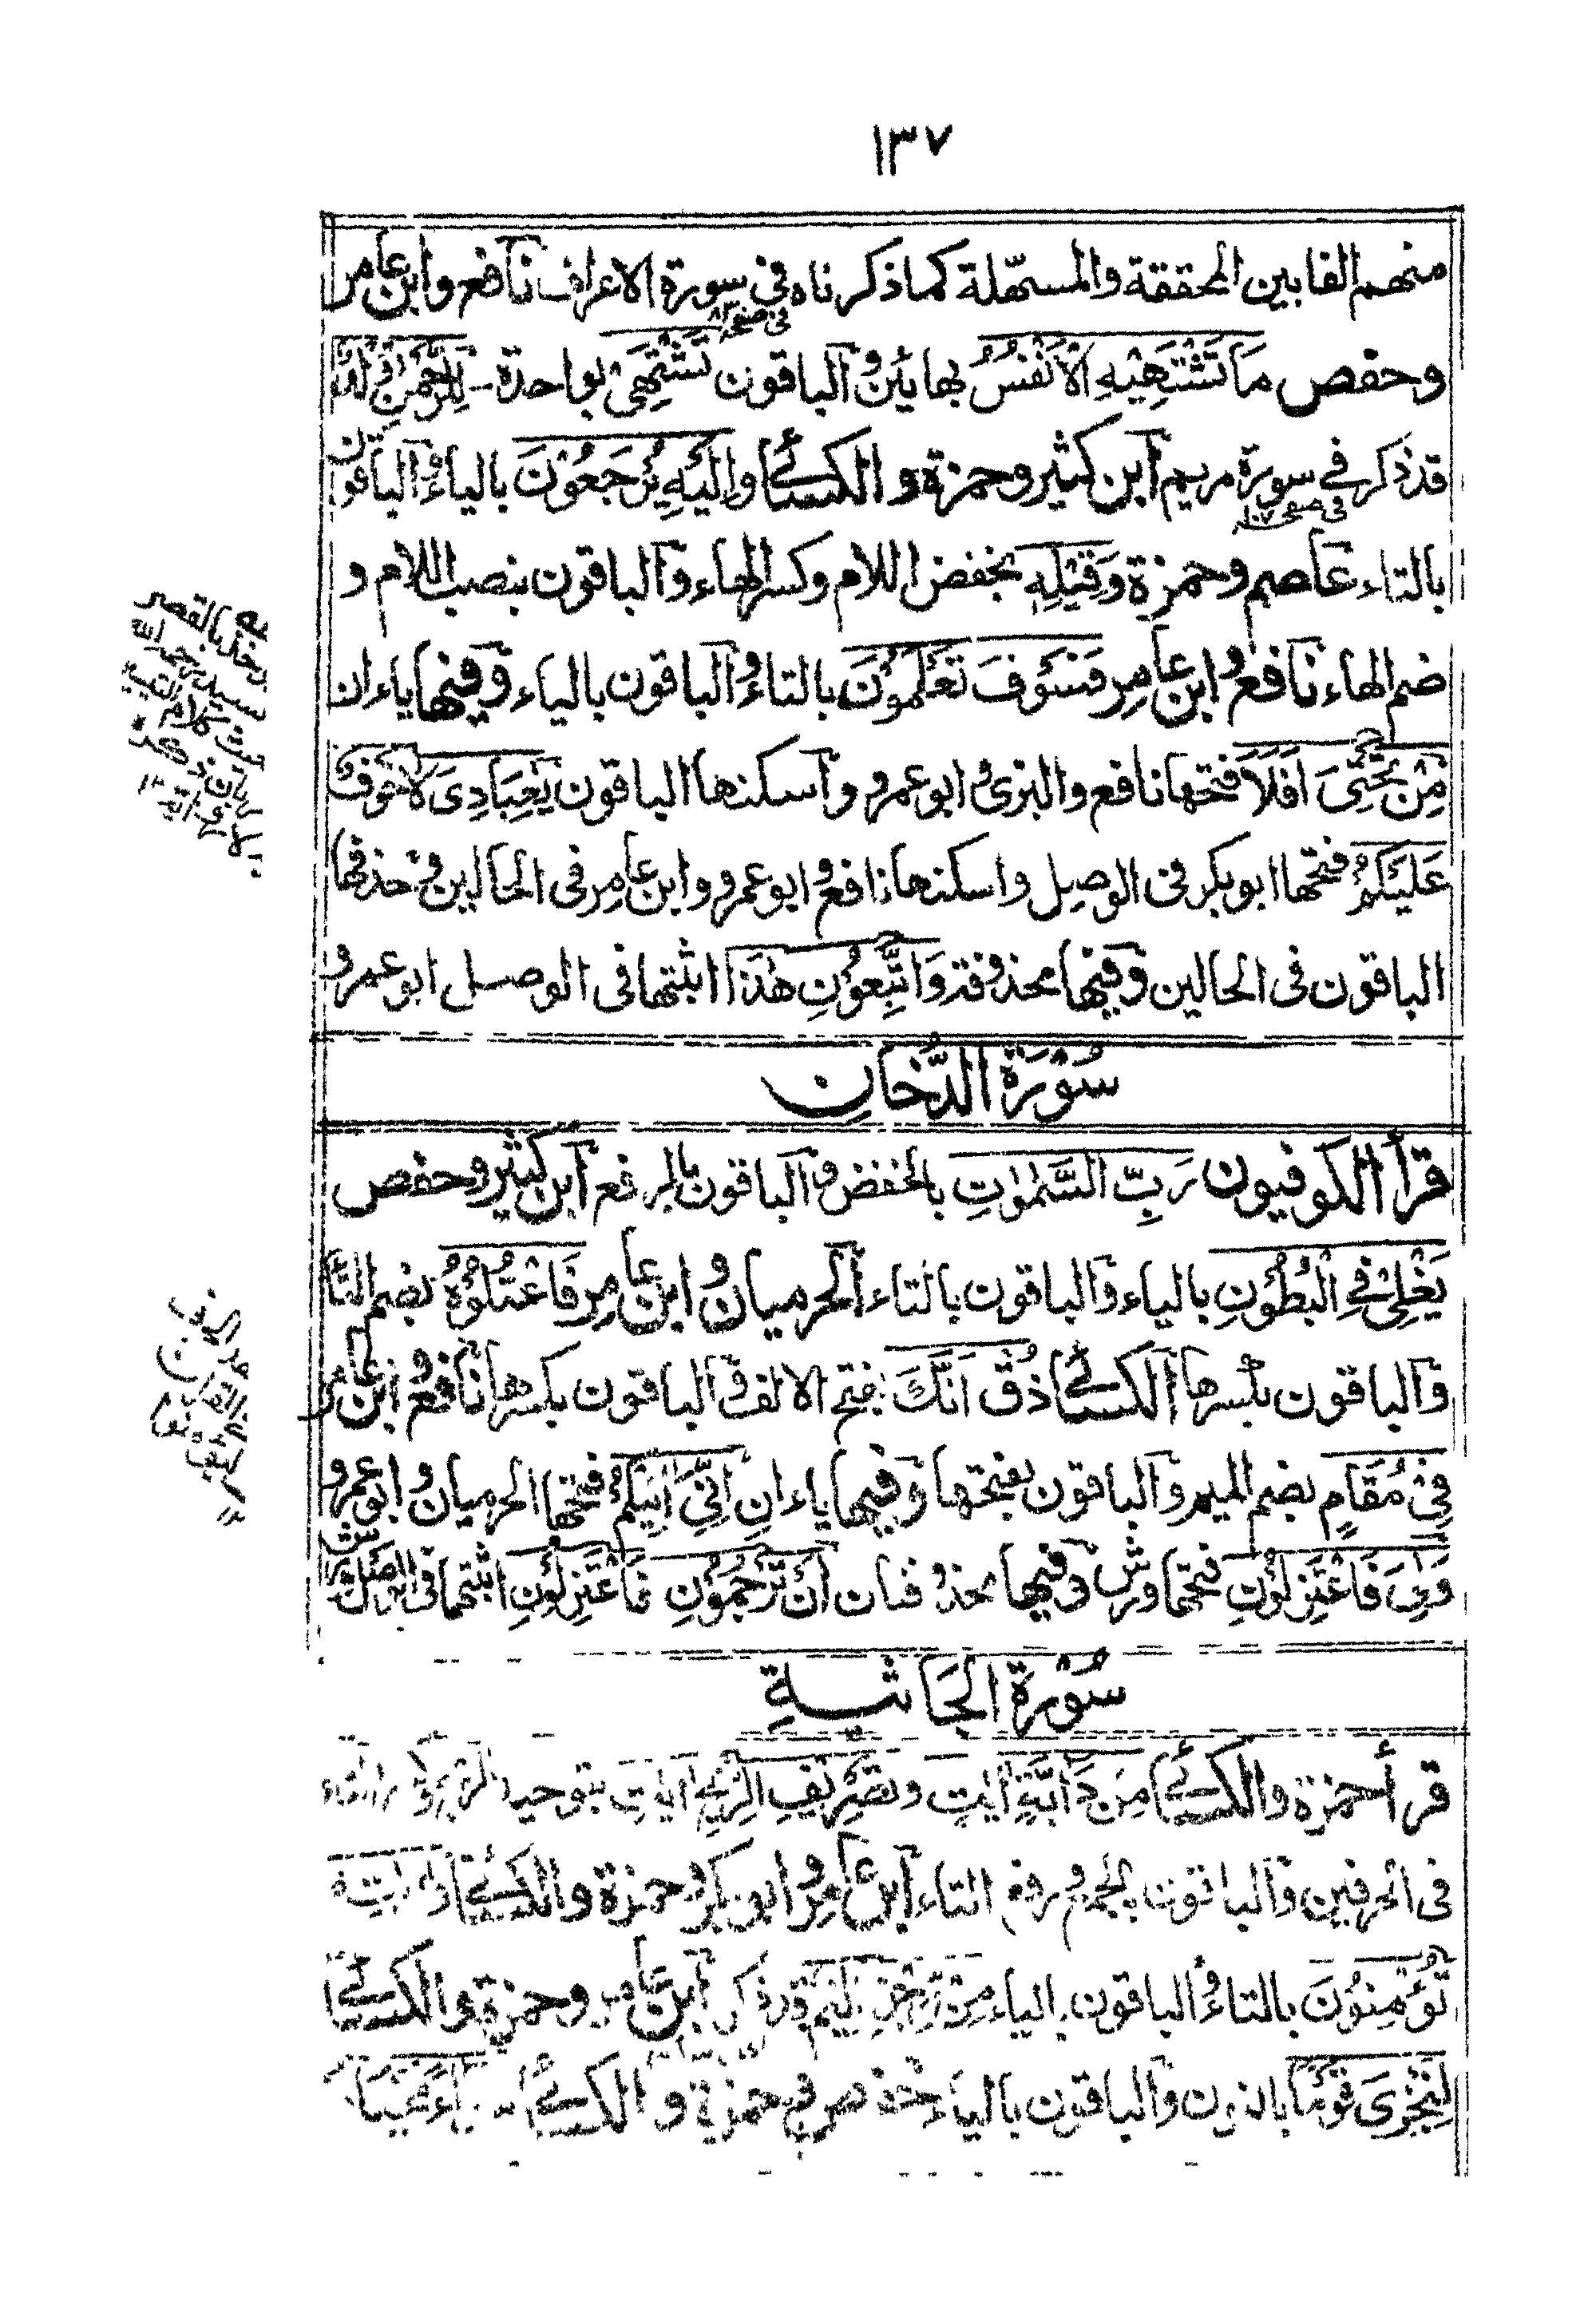 ١٣٧
منهم الفا بين المحققة والمسهّلة كما ذكرناه في سورة الاعراف نافع وابن عامر
في صفحہ
وحفص مَا تَشْتَهِيْهِ الْاَنْفُسُ بهائين والباقون تَشْتَهِيْ بواحدة لِلرَّحْمٰنِ وَلَدٌ
قد ذكر في سورة مريم ابن كثير وحمزة والكسائي وَاِلَيْهِ يُرْجَعُوْنَ بالياء والباقون
في صفحہ
بالتاء عاصم وحمزة وَقِيْلِهٖ بخفض اللام وكسر الهاء والباقون بنصب اللام و
ضم الهاء نافع وابن عامر فَسَوْفَ تَعْلَمُوْنَ بالتاء والباقون بالياء وفيها ياءان
مِنْ تَحْتِيَ اَفَلَا فتحها نافع والبزي وابو عمرو واسكنها الباقون يٰعِبَادِيَ لَا خَوْفٌ
عَلَيْكُمْ فتحها ابوبكر في الوصل واسكنها نافع وابو عمرو وابن عامر في الحالين وحذفها
الباقون في الحالين وفيها محذوفة وَاتَّبِعُوْنِ هٰذَا اثبتها في الوصل ابو عمرو
سُوْرَةُ الدُّخَانِ
قرأ الكوفيون رَبِّ السَّمٰوٰتِ بالخفض والباقون بالرفع ابن كثير وحفص
يَغْلِيْ فِي الْبُطُوْنِ بالياء والباقون بالتاء الحرميان وابن عامر فَاعْتُلُوْهُ بضم التاء
والباقون بكسرها الكسائي ذُقْ اَنَّكَ بفتح الالف والباقون بكسرها نافع وابن عامر
فِيْ مُقَامٍ بضم الميم والباقون بفتحها وفيها ياءان اِنِّيَ اٰتِيْكُمْ فتحها الحرميان وابو عمرو
وَلِيَ فَاعْتَزِلُوْنِ فتحها ورش وفيها محذوفتان اَنْ تَرْجُمُوْنِ فَاعْتَزِلُوْنِ اثبتهما في الوصل ورش
سُوْرَةُ الْجَاثِيَةِ
قرأ حمزة والكسائي مِنْ دَآبَّةٍ اٰيٰتٍ وَتَصْرِيْفِ الرِّيْحِ اٰيٰتٍ بتوحيد
في الحرفين والباقون بالجمع ورفع التاء ابن عامر وابوبكر وحمزة والكسائي
تُؤْمِنُوْنَ بالتاء والباقون بالياء مِنْ رِجْزٍ اَلِيْمٍ قد ذكر ابن عامر وحمزة والكسائي
لِنَجْزِيَ قَوْمًا بالنون والباقون بالياء حفص وحمزة والكسائي